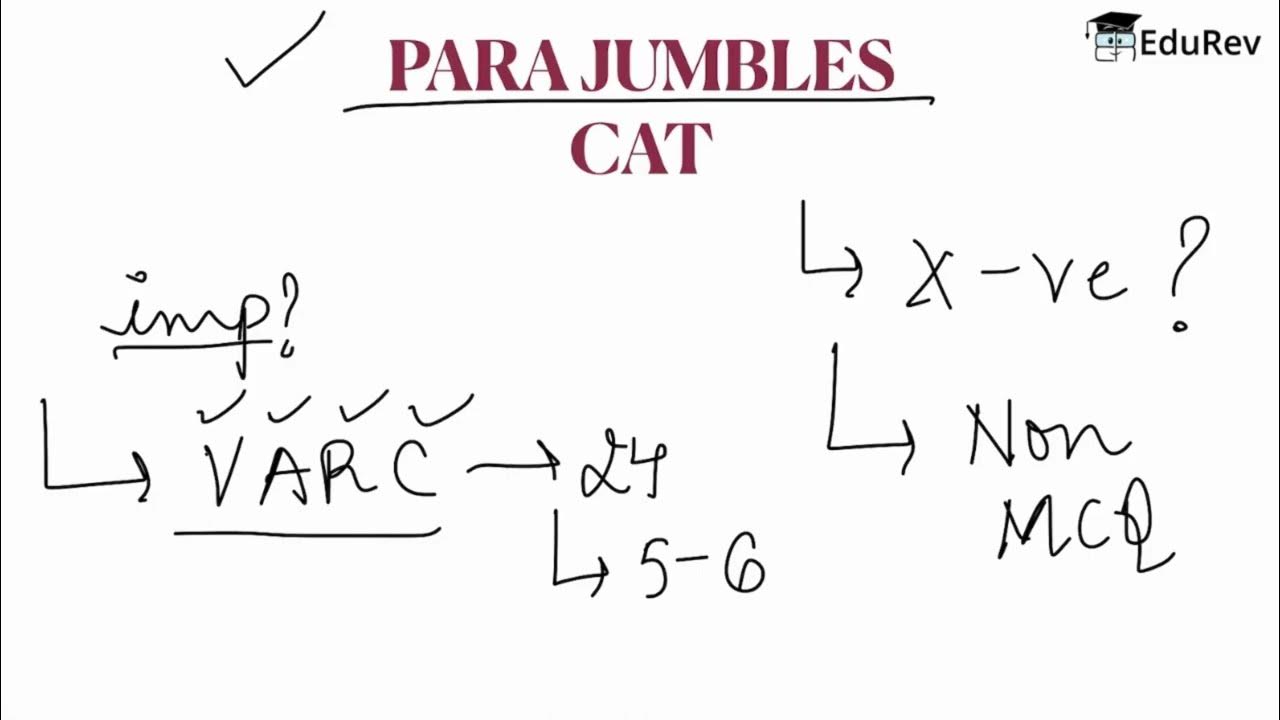 PARA JUMBLES
CAT
EduRev
imp?
VARC → 24
5-6
X -ve ?
Non
MCQ